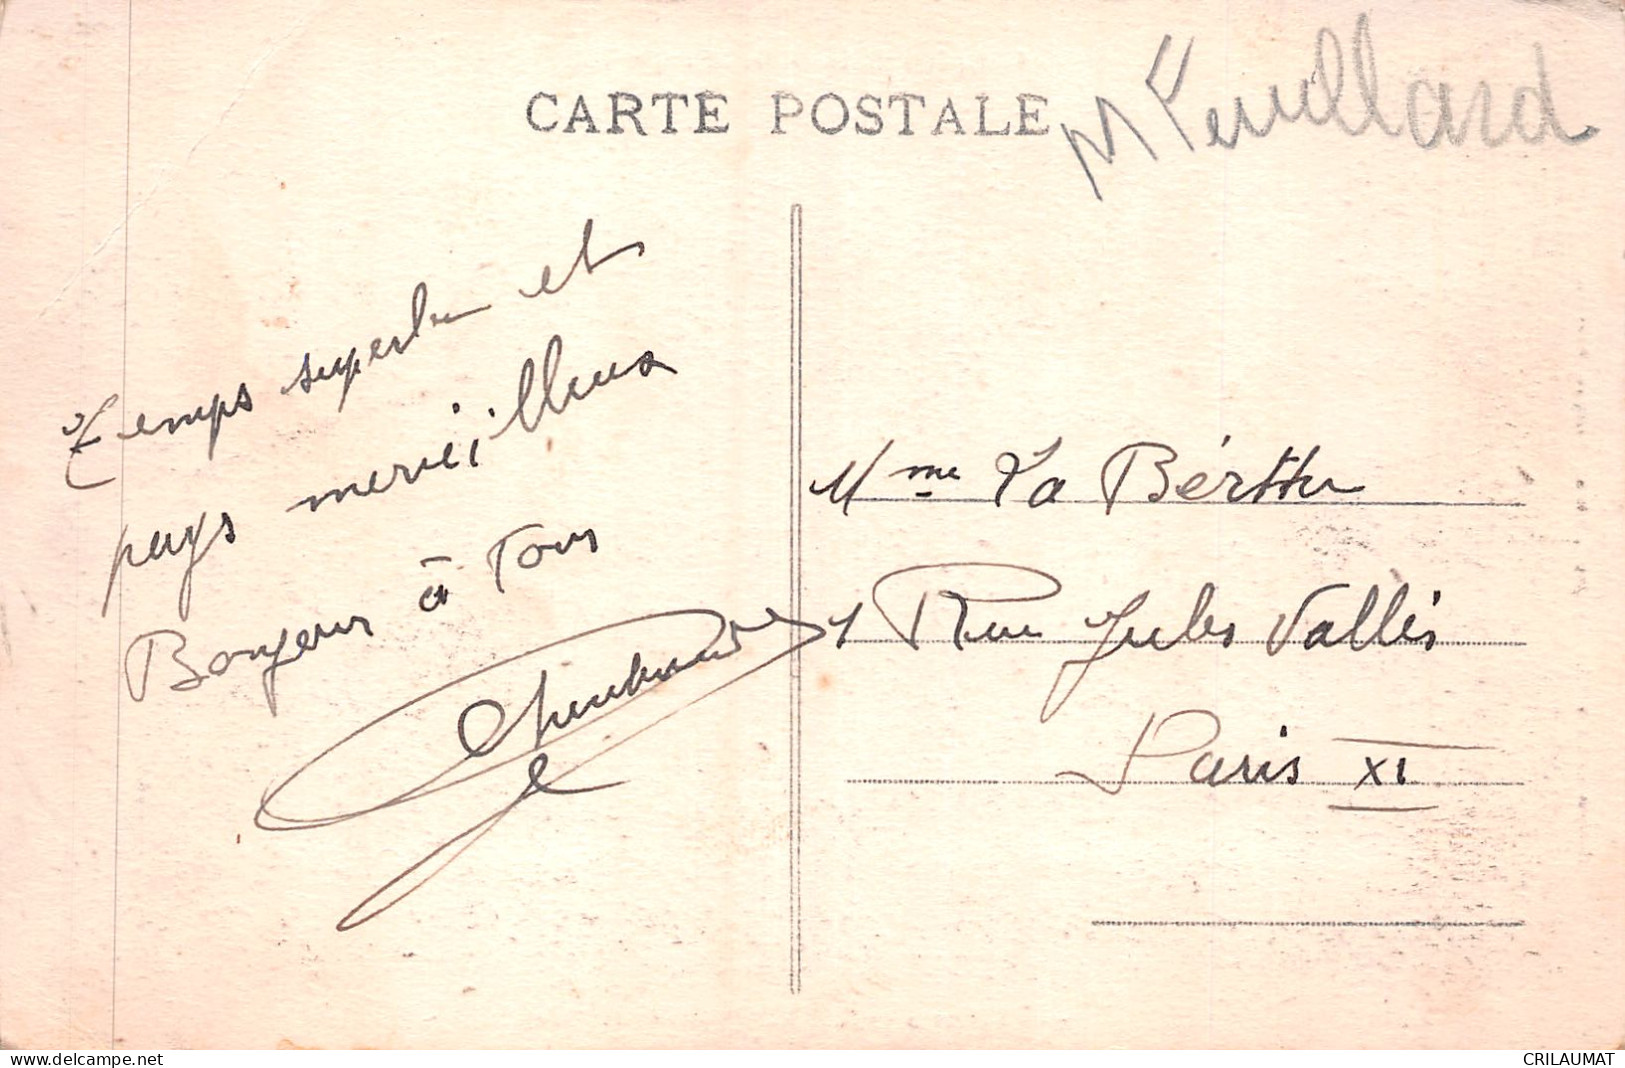 CARTE POSTALE
M Feuillard
Temps superbe et
pays merveilleux
Bonjour à Tous
Mme La Berthe
1 Rue Jules Vallès
Paris XI
www.delcampe.net
CRILAUMAT